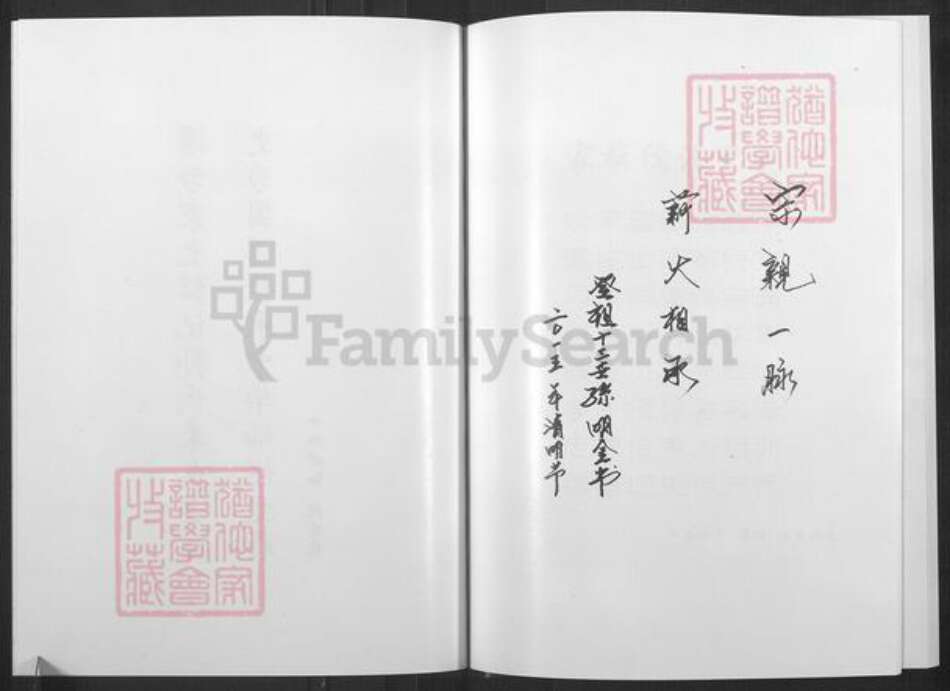 宗親一脉
薪火相承
登祖十三世孫明全书
二0一五年清明节
猶他家
譜學會
收藏
猶他家
譜學會
收藏
FamilySearch